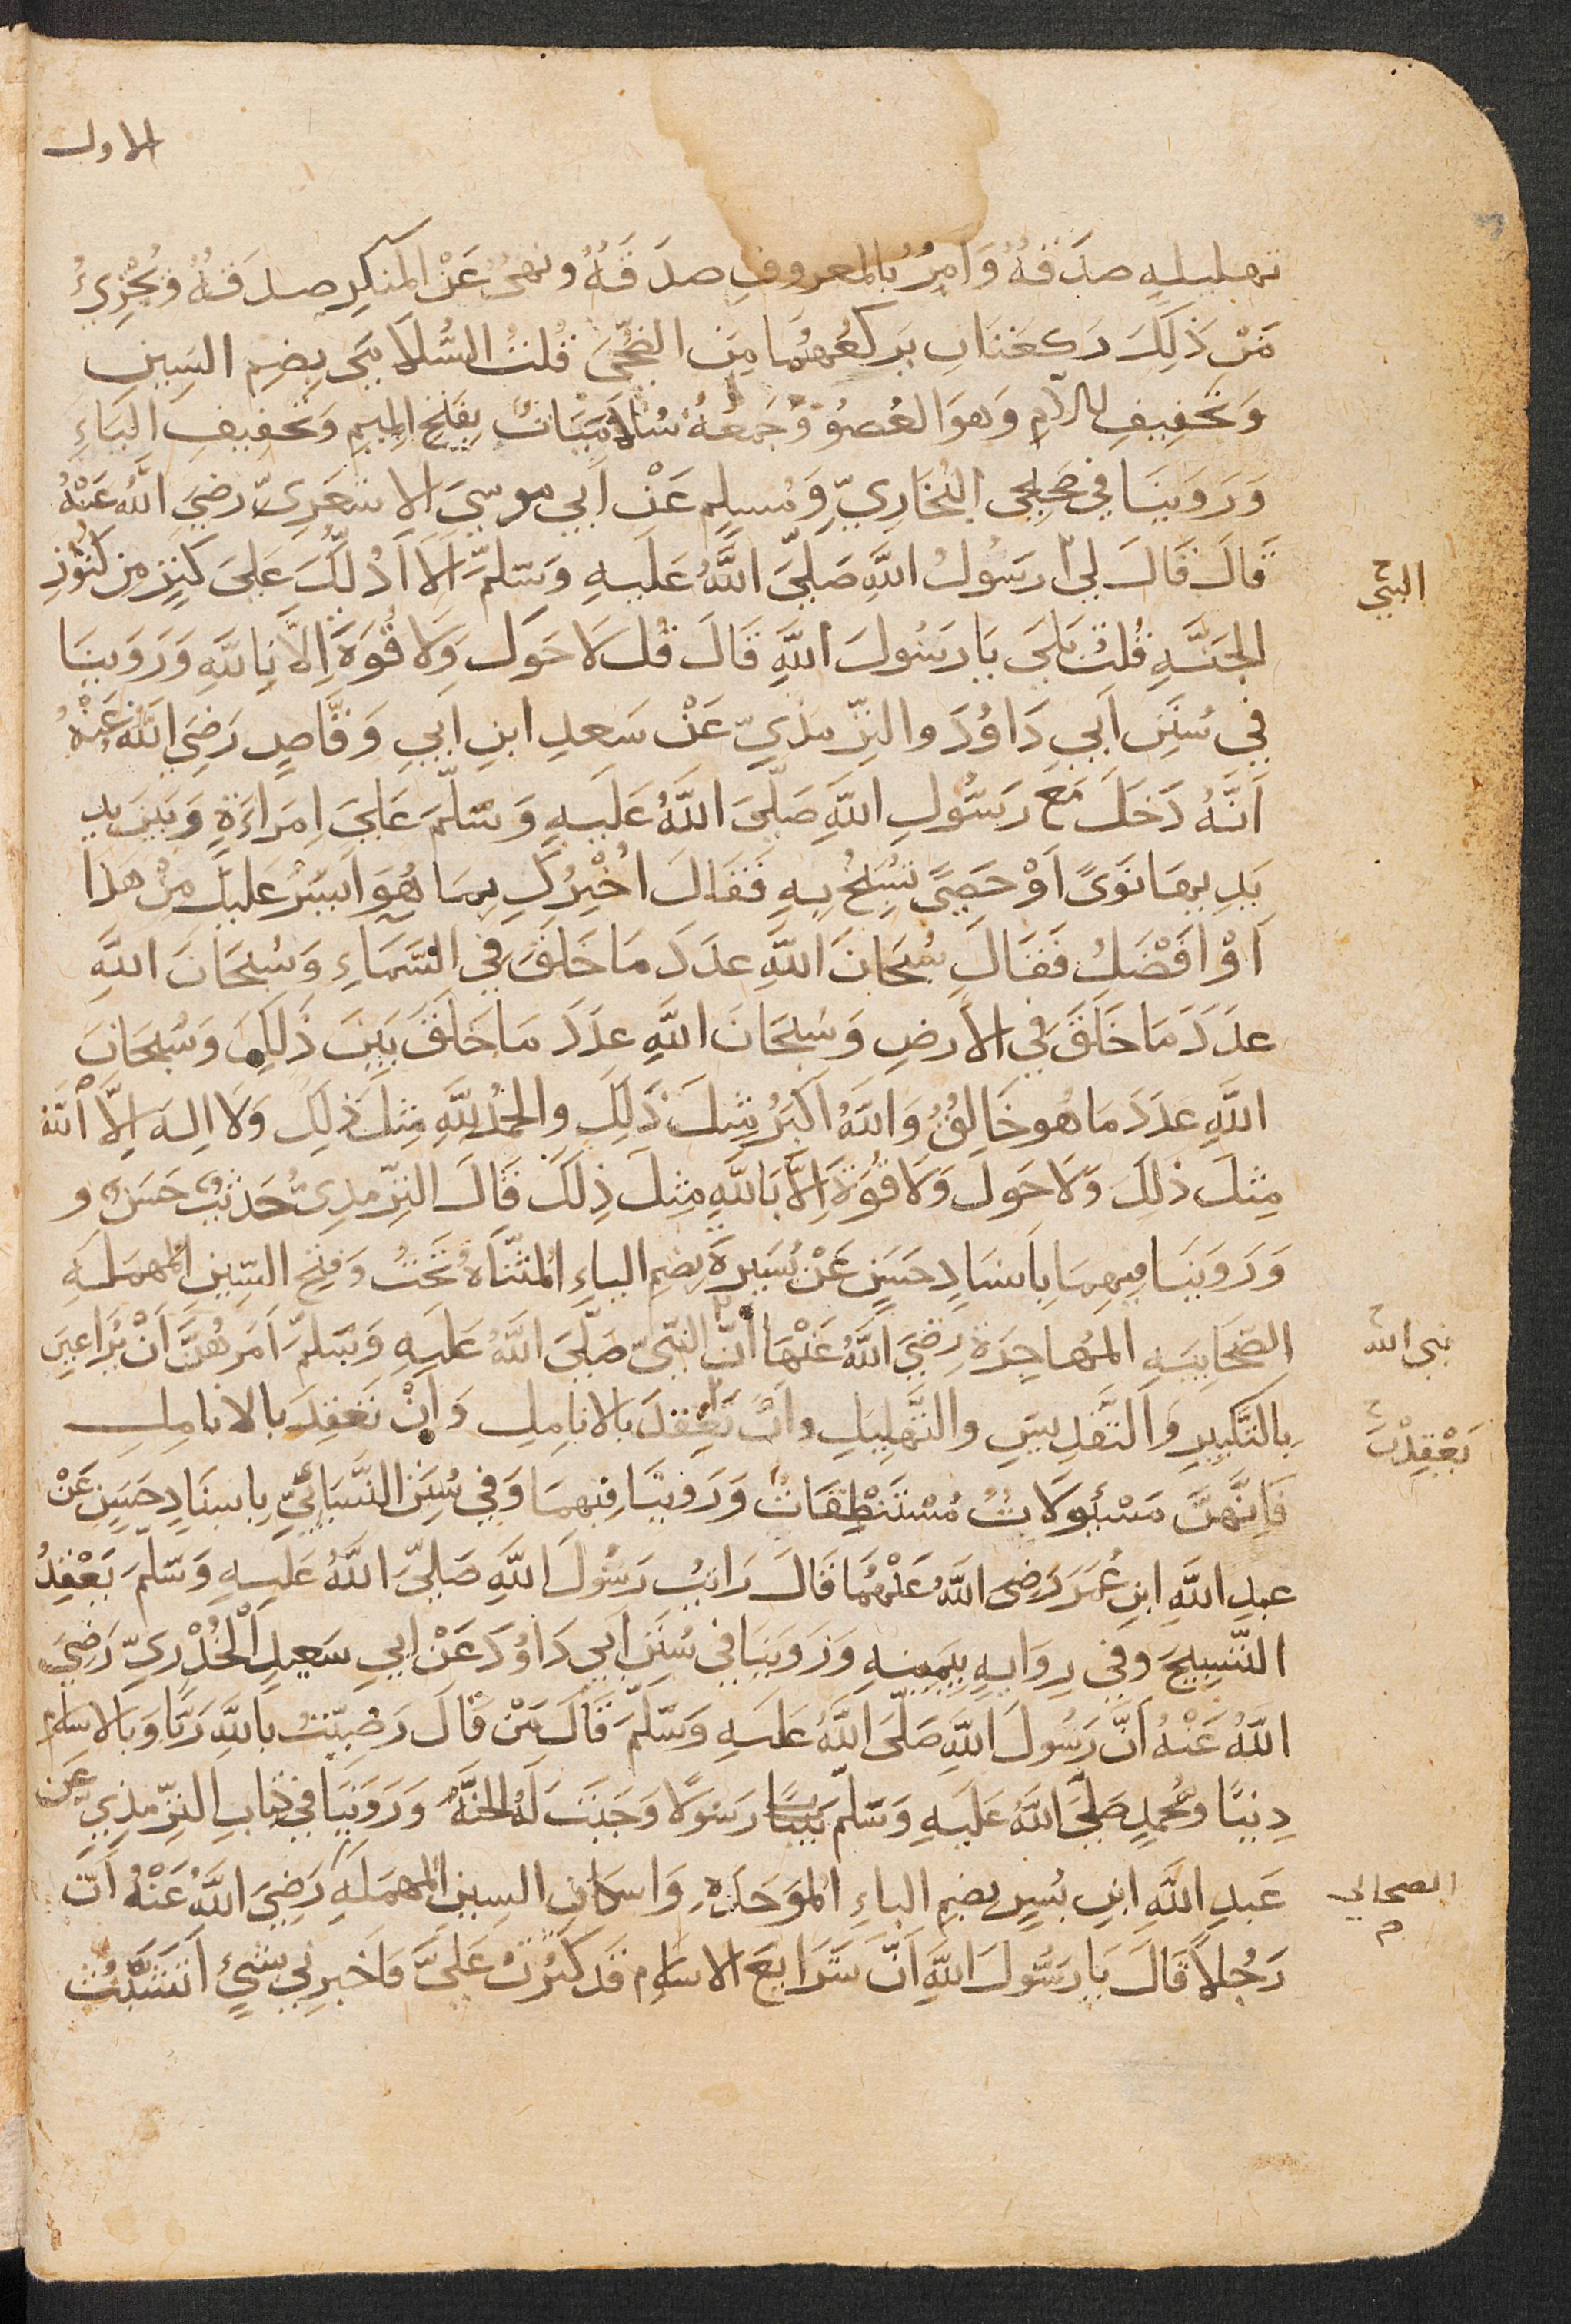 الاول
تهليلهٍ صدَقهٌ وَأمرٌ بالمعروفِ صدَقَهٌ ونهىٌ عَنْ المنكرِ صدَقَهٌ وَيُجْزِيءُ
مَنْ ذلِكَ رَكعَتَانِ يَركعُهُمَا مِنَ الضُّحَىَ قُلتُ السُّلَامَىَ بِضمِ السَينِ
وَتخفيفِ اللامِ وَهوَ العُضوُ وَجَمعُهُ سُلَامَيَاتٌ بِفَتحِ الميمِ وَتخفيفِ اليَاءِ
وَرَوَينَا في صَحِيحى البُخَارِيّ وَمُسلمٍ عَنْ اَبي موسىَ الاشعَرِىّ رضىَ اللّهُ عَنْهُ
قَالَ قَالَ لي رَسُولُ اللَّهِ صَلّىَ اللَّهُ عَلَيهِ وَسَلَّمَ اَلَا اَدُلُّكَ عَلىَ كَنزٍ مِن كنُوُزِ
النبيّ
الجَنَّهِ قُلتُ بَلىَ يَا رَسُولَ اللَّهِ قَالَ قُل لَا حَولَ وَلَا قُوَةَ اِلَّا بِاللَّهِ وَرَوَينَا
في سُنَنِ اَبي دَاوُدَ والتِرّمذيِّ عَنْ سَعدِ ابنِ ابي وَقَّاصٍ رَضِىَ اللَّهُ عَنْهُ
اَنَّهُ دَخَلَ مَعَ رَسُولِ اللَّهِ صَلّىَ اللَّهُ عَلَيهِ وَسَلَّمَ عَلىَ اِمَراءَةٍ وَبَينَ يدِ
يَدِيهَا نَوَىً اَوْ حَصىً تُسَبِحُ بِهِ فَقَالَ اُخْبِرُكِ بِمَا هُوَ اَيسَرُ عَليكَ مِنْ هَذَا
اَوْ افَضَلُ فَقَالَ سُبحَانَ اللَّهِ عدَدَ مَا خَلَقَ فِي السَّمَاءِ وَسُبحَانَ اللَّهِ
عدَدَ مَا خَلَقَ فِي الاَرضِ وَسُبحَانَ اللَّهِ عدَدَ مَا خَلَقَ بَيَنَ ذَلِكَ وَسُبحَانَ
اللَّهِ عدَدَ مَا هُو خَالِقٌ وَاللَّهُ اَكبَرُ مِثلَ ذَلِكَ والحَمدُ للَّهِ مِثلَ ذلِكَ وَلَا اِلهَ اِلَّا اللهَ
مِثلَ ذلِكَ وَلَا حَولَ وَلَا قُوَةَ اِلَّا بِاللَّهِ مِثلَ ذِلكَ قَالَ التِرّمِذِىّ حَدَيثٌ حَسَنٌ و
وَرَوَينَا فِيهِمَا بِاَسنَادٍ حَسَنٍ عَنْ يُسَيرَةَ بِضمِ الياءِ المثنّاةِ تَحَتُ وَفَتحِ السّينِ المُهمَلَهِ
الصّحَابِيَهِ المُهاجِرَةِ رَضِىَ اللَّهُ عَنْهَا انَّ النبّىّ صَلّىَ اللَّهُ عَلَيهِ وَسَلّمَ اَمَرَهُنَّ اَنْ يُرَاعِينَ
نبى الله
بِالتّكَبِيرِ وَالتَقدِيسِ والتَّهلِيلِ وانَّ يَعقِدَ بالانامِلِ وَانْ تَعقِدَ بالانامِلِ
يَعْقِدْنَ
فَاِنَّهنَ مَسْئُولَاتٌ مُسْتَنْطِقَاتٌ وَرَوَينَا فِيهمَا وَفي سُنَنِ النَّسَائيِّ بِاسنَادٍ حَسَنٍ عَنْ
عبدِ اللَّهِ ابنِ عُمَرَ رَضِىَ اللَّهُ عَنْهُمَا قَالَ رَايتُ رَسُولَ اللَّهِ صَلّىَ اللَّهُ عَلَيهِ وَسَلّمَ يَعْقِدُ
التّسبِيحَ وَفي رِوَايهٍ بِيَمينهِ وَرَوَينَا في سُنَنِ اَبي دَاوُدَ عَنْ ابي سَعيدِ الْخُدْرِيّ رَضِىَ
اللَّهُ عَنْهُ اَنَّ رَسُولَ اللَّهِ صَلّىَ اللَّهُ عَلَيهِ وَسَلَّمَ قَالَ مَنْ قَالَ رَضِيتُ باللَّهِ رَبًّا وَبالاسلام
دِينًا وَمُحمدٍ صَلّىَ اللَّهُ عَلَيهِ وَسَلّمَ رَسُولًا وَجَبَتَ لَهُ الجنَّهُ وَرَوَينَا في كتابِ التِرّمِذِيّ عَن
عَبدِ اللَّهِ ابنِ بُسرٍ بضمِ الباءِ الموَحَدَةِ وَاسكَانِ السِينِ المُهمَلَهِ رَضِىَ اللَّهُ عَنْهُ اَنَّ
الصحابي
رَجُلاً قَالَ يَا رَسُولَ اللَّهِ اَنَّ شَرَايعَ الاسلامِ قَد كَثُرَتْ عَلىَّ فَاخبِرنِي بِشَيءٍ اَتَشَبّثُ